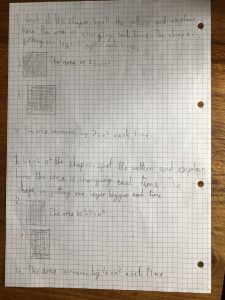 1. Look at the shape. Spot the pattern and explain
how the area is changing each time. The shape
getting one layer bigger each time.
2.
The area is 25cm²
3.
4. The area increase by 7cm² each time
1. Look at the shape. Spot the pattern and explain
how the area is changing each time. The
shape is getting one layer bigger each time
2.
The area is 20cm²
3.
4. The area increase by 4cm² each time